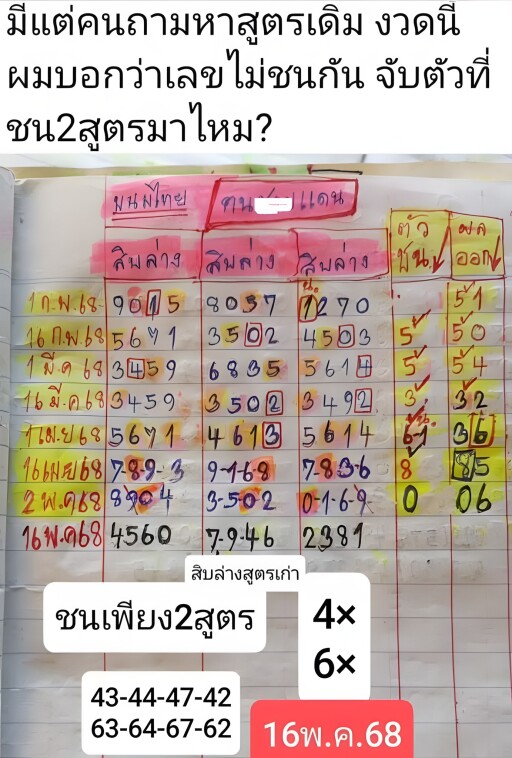 มีแต่คนถามหาสูตรเดิม งวดนี้
ผมบอกว่าเลขไม่ชนกัน จับตัวที่
ชน2สูตรมาไหม?
แดน
ตัว ผล
สิบล่าง สิบล่าง สิบล่าง ชน ออก
1 ก.พ.68 9015 8037 1270 51
16 ก.พ.68 5671 3502 4503 5 50
1 มี.ค 68 3459 6835 5614 5 54
16 มี.ค 68 3459 3502 3492 3 32
1 เม.ย 68 5671 4613 5614 36
16 เมย 68 7-89-3 9-1-68 7-836 8 85
2 พ.ค 68 8904 3-502 0-1-69 0 06
16 พ.ค 68 4560 7-9-46 2381
สิบล่างสูตรเก่า
ชนเพียง2สูตร
4×
6×
43-44-47-42
63-64-67-62
16พ.ค.68